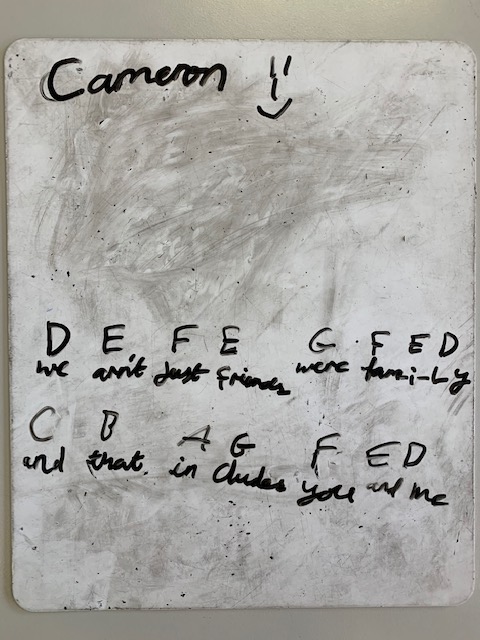 Cameron
D E F E G F E D
we arn't Just friends were fam-i-Ly
C B A G F E D
and that in cludes you and me